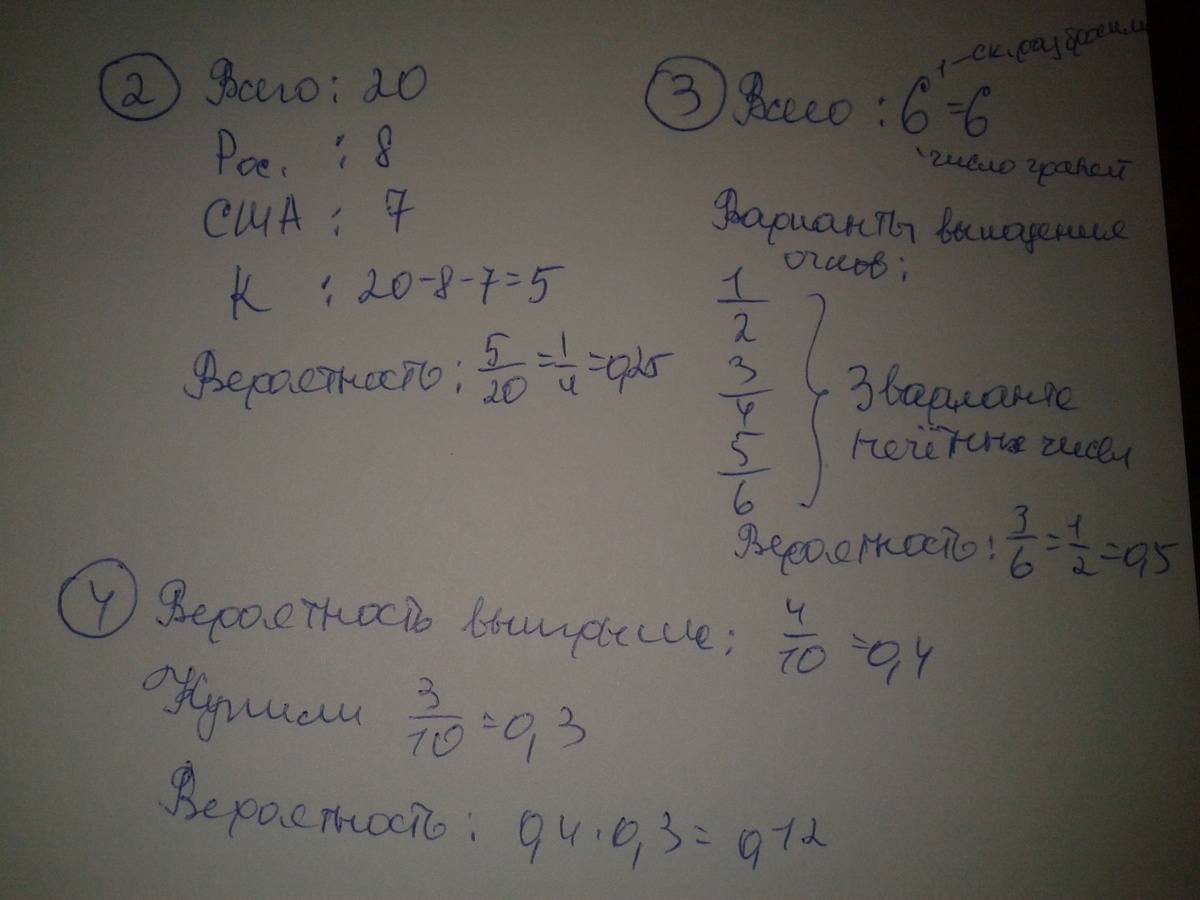 2 Всего : 20
Рос. : 8
США : 7
К : 20-8-7=5
Вероятность : 5/20 = 1/4 = 0,25
3 Всего : 6¹ = 6
1 – ск. раз бросили
число граней
Варианты выпадение
очков :
1
2
3
4
5
6
3 варианта
нечётных чисел
Вероятность : 3/6 = 1/2 = 0,5
4 Вероятность выигрыша : 4/10 = 0,4
Купили 3/10 = 0,3
Вероятность : 0,4 · 0,3 = 0,12